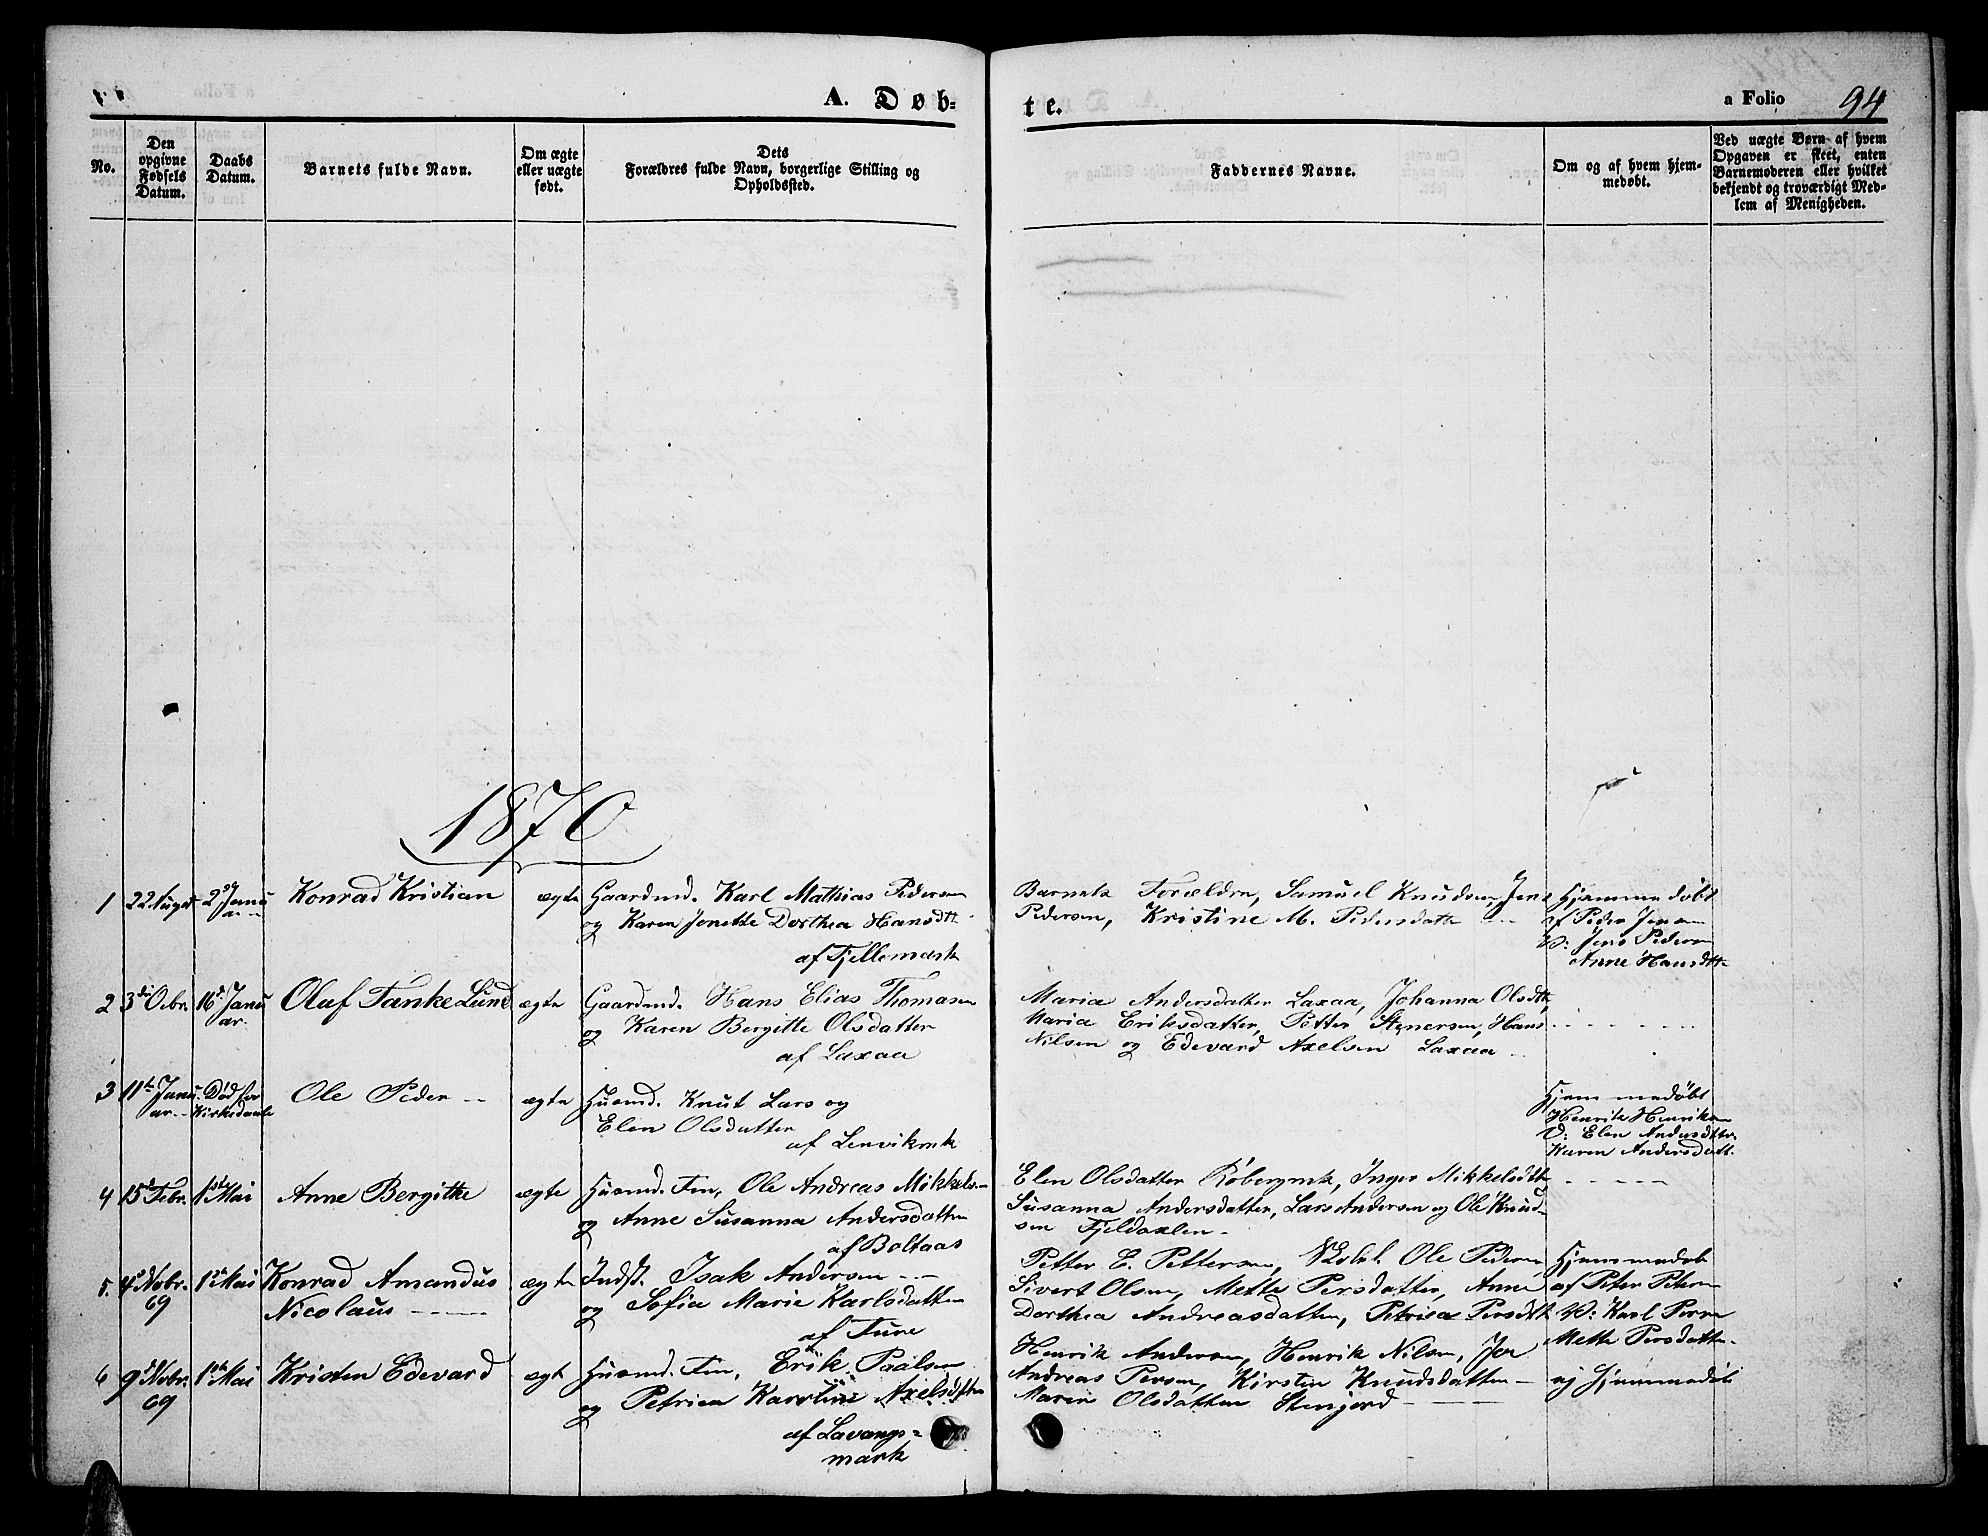 A. Døb=
te.
a Folio 94
No.
Den opgivne Fødsels Datum.
Daabs Datum.
Barnets fulde Navn.
Om ægte eller uægte født.
Dets
Forældres fulde Navn, borgerlige Stilling og
Opholdssted.
Faddernes Navne.
Om og af hvem hjem-
medøbt.
Ved uægte Børn af hvem
Opgaven er skeet, enten
Barnemoderen eller hvilket
bekjendt og troværdigt Med-
lem af Menigheden.
1870
1 22 August 2 Janu Konrad Kristian ægte Gaardmd. Karl Mathias Pedersen
ar og Karen Jonette Dorthea Hansdtt.
af Fjellemark
Barnets Forældre, Samuel Knudsen, Jens
Pedersen, Kristine M. Pedersdatt
Hjemmedøbt
af Peder Jensen
V: Jens Pedersen
Anne Hansdttr
2 3d Octbr. 16d Janu Olaf Tanke Lund ægte Gaardmd. Hans Elias Thomasen
ar. og Karen Bergitte Olsdatter
af Laxaa
Maria Andersdatter Laxaa, Johanna Olsdtt,
Maria Eriksdatter, Petter Stenersen, Hans
Nilsen og Edevard Axelsen Laxaa
3 11te Janu Død før Ole Peder ægte Husmd. Knut Lars og
ar Kirkedaab Elen Olsdatter
af Lenvikmk
Hjemmedøbt
Henrik Henriksen
V: Elen Andersdtter
Karen Andersdatt.
4 15d Febr. 1ste Mai Anne Bergitte ægte Husmd. Fin, Ole Andreas Mikkels.
og Anne Susanna Andersdatter
af Boltaas
Elen Olsdatter Røbergmk, Inger Mikkelsdtt
Susanna Andersdatter, Lars Andersen og Ole Knud-
sen Fjeldaxlen
5. 4d Novbr. 1ste Mai Konrad Amandus ægte Indst. Isak Andersen
69 Nicolaus og Sofia Marie Karlsdatter
af Fure
Petter E. Pettersen, Ole Pedersen
Sivert Olsen, Mette Persdatter, Anne
Dorthea Andreasdatter, Petrica Persdtt
Hjemmedøbt
af Peter Petersen
V: Karl Persen
Mette Persdatter
6 9d Novbr. 1ste Mai Kristen Edevard ægt Husmd. Fin, Erik Paalsen
69 og Petrica Karoline Axelsdtter
af Lavangs=
mark
Henrik Andersen, Henrik Nilsen, Jon
Andreas Persen, Kirsten Knudsdatter
Maren Olsdatter Stenjord
ej Hjemmedøbt